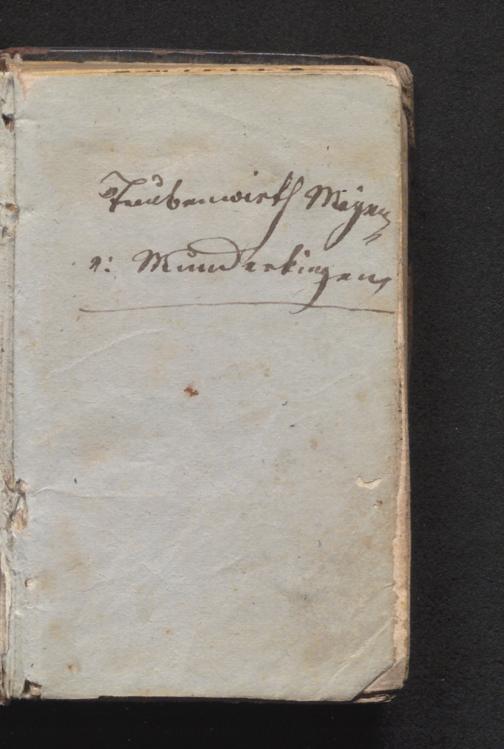 Traubenwirth Meyer
v: Munderkingen